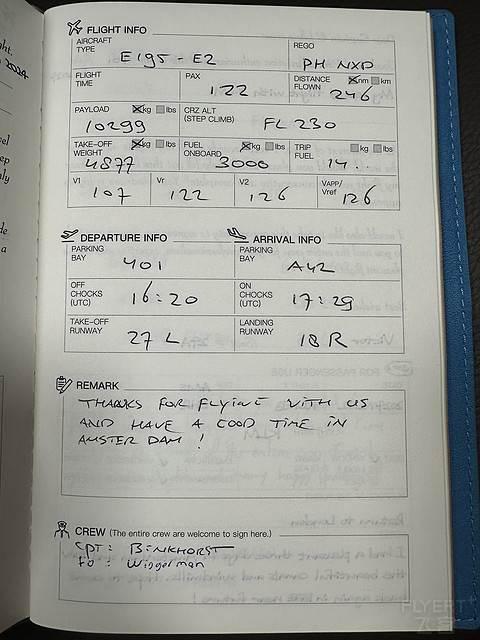 FLIGHT INFO
AIRCRAFT TYPE E195-E2 REGO PH NXD
FLIGHT TIME PAX 122 DISTANCE FLOWN nm km 246
PAYLOAD kg lbs 10299 CRZ ALT (STEP CLIMB) FL 230
TAKE-OFF WEIGHT kg lbs 4877 FUEL ONBOARD kg lbs 3000 TRIP FUEL kg lbs 14..
V1 107 Vr 122 V2 126 VAPP/Vref 126
DEPARTURE INFO ARRIVAL INFO
PARKING BAY 401 PARKING BAY A42
OFF CHOCKS (UTC) 16:20 ON CHOCKS (UTC) 17:29
TAKE-OFF RUNWAY 27 L LANDING RUNWAY 18 R
REMARK
THANKS FOR FLYING WITH US
AND HAVE A GOOD TIME IN
AMSTERDAM !
CREW (The entire crew are welcome to sign here.)
CPT : BINKHORST
FO : Wiggerman
FLYERT
飞客